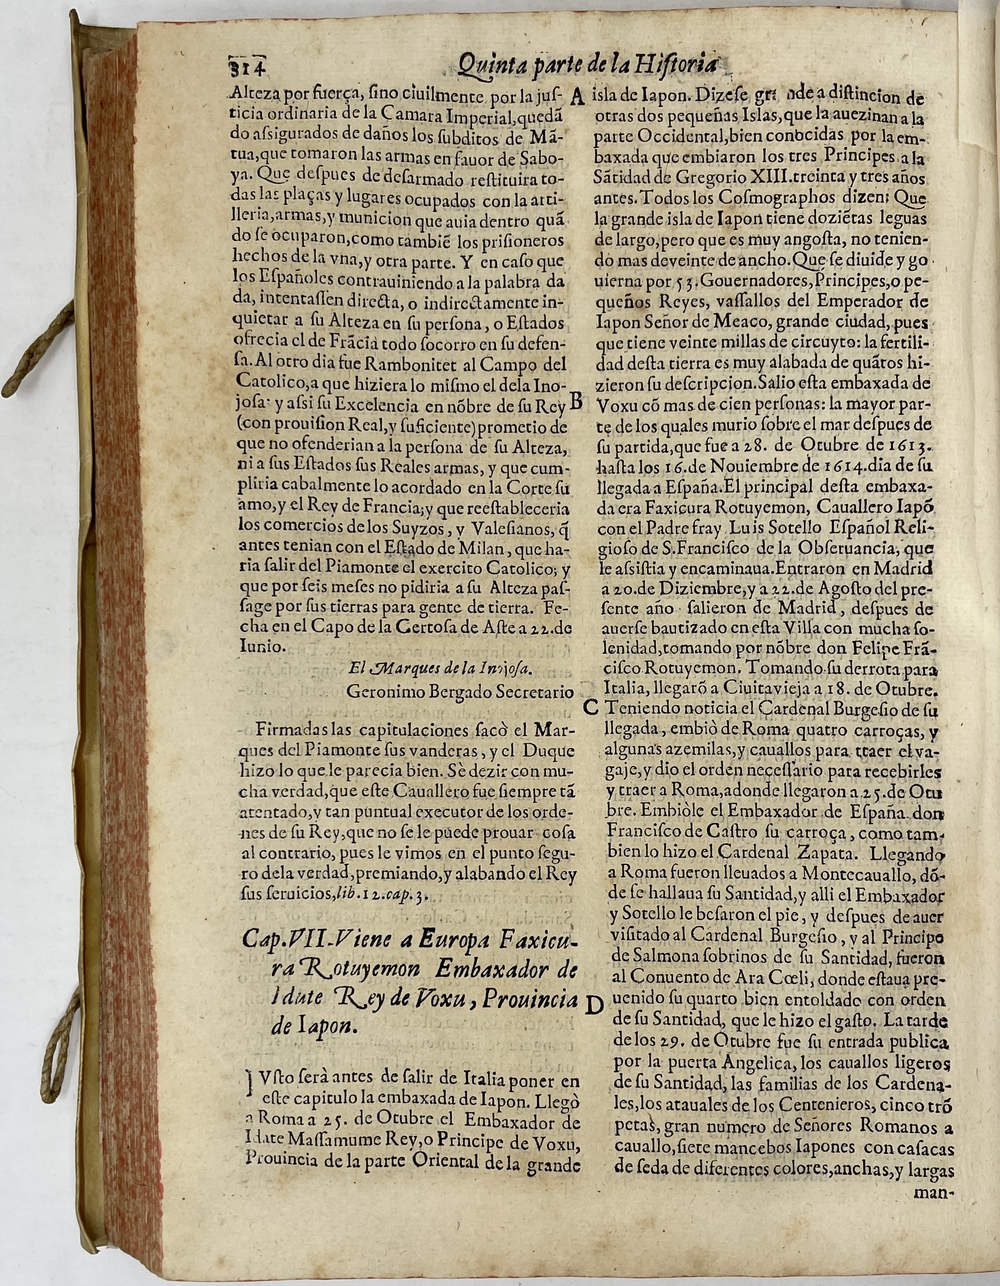 314
Quinta parte de la Historia
Alteza por fuerça, sino ciuilmente por la jus-
ticia ordinaria de la Camara Imperial, quedã
do assigurados de daños los subditos de Mã-
tua, que tomaron las armas en fauor de Sabo-
ya. Que despues de desarmado restituira to-
das las plaças y lugares ocupados con la arti-
lleria, armas, y municion que auia dentro quã
do se ocuparon, como tambiẽ los prisioneros
hechos de la vna, y otra parte. Y en caso que
los Españoles contrauiniendo a la palabra da
da, intentassen directa, o indirectamente in-
quietar a su Alteza en su persona, o Estados
ofrecia el de Frãcia todo socorro en su defen-
sa. Al otro dia fue Rambonitet al Campo del
Catolico, a que hiziera lo mismo el de la Ino-
josa: y assi su Excelencia en nõbre de su Rey
(con prouision Real, y suficiente) prometio de
que no ofenderian a la persona de su Alteza,
ni a sus Estados sus Reales armas, y que cum-
pliria cabalmente lo acordado en la Corte su
amo, y el Rey de Francia; y que reestableceria
los comercios de los Suyzos, y Valesianos, q̃
antes tenian con el Estado de Milan, que ha-
ria salir del Piamonte el exercito Catolico; y
que por seis meses no pidiria a su Alteza pas-
sage por sus tierras para gente de tierra. Fe-
cha en el Capo de la Certosa de Aste a 22. de
Iunio.
El Marques de la Inojosa.
Geronimo Bergado Secretario
Firmadas las capitulaciones sacò el Mar-
ques del Piamonte sus vanderas, y el Duque
hizo lo que le parecia bien. Sè dezir con mu-
cha verdad, que este Cauallero fue siempre tã
atentado, y tan puntual executor de los orde-
nes de su Rey, que no se le puede prouar cosa
al contrario, pues le vimos en el punto segu-
ro de la verdad, premiando, y alabando el Rey
sus seruicios, lib. 12. cap. 3.
Cap. VII. Viene a Europa Faxicu-
ra Rotuyemon Embaxador de
Idate Rey de Voxu, Prouincia
de Iapon.
IVsto serà antes de salir de Italia poner en
este capitulo la embaxada de Iapon. Llegò
a Roma a 25. de Otubre el Embaxador de
Idate Massamume Rey, o Principe de Voxu,
Prouincia de la parte Oriental de la grande
A isla de Iapon. Dizese grande a distincion de
otras dos pequeñas Islas, que la auezinan a la
parte Occidental, bien conocidas por la em-
baxada que embiaron los tres Principes a la
Sãtidad de Gregorio XIII. treinta y tres años
antes. Todos los Cosmographos dizen: Que
la grande isla de Iapon tiene doziẽtas leguas
de largo, pero que es muy angosta, no tenien-
do mas de veinte de ancho. Que se diuide y go
uierna por 53. Gouernadores, Principes, o pe-
queños Reyes, vassallos del Emperador de
Iapon Señor de Meaco, grande ciudad, pues
que tiene veinte millas de circuyto: la fertili-
dad desta tierra es muy alabada de quãtos hi-
zieron su descripcion. Salio esta embaxada de
B Voxu cõ mas de cien personas: la mayor par-
te de los quales murio sobre el mar despues de
su partida, que fue a 28. de Otubre de 1613.
hasta los 16. de Nouiembre de 1614. dia de su
llegada a España. El principal desta embaxa-
da era Faxicura Rotuyemon, Cauallero Iapõ
con el Padre fray Luis Sotello Español Reli-
gioso de S. Francisco de la Obseruancia, que
le assistia y encaminaua. Entraron en Madrid
a 20. de Diziembre, y a 22. de Agosto del pre-
sente año salieron de Madrid, despues de
auerse bautizado en esta Villa con mucha so-
lenidad, tomando por nõbre don Felipe Frã-
cisco Rotuyemon. Tomando su derrota para
Italia, llegarõ a Ciuitavieja a 18. de Otubre.
C Teniendo noticia el Cardenal Burgesio de su
llegada, embiò de Roma quatro carroças, y
algunas azemilas, y cauallos para traer el va-
gaje, y dio el orden necessario para recebirles
y traer a Roma, adonde llegaron a 25. de Otu
bre. Embiòle el Embaxador de España don
Francisco de Castro su carroça, como tam-
bien lo hizo el Cardenal Zapata. Llegando
a Roma fueron lleuados a Montecauallo, dõ-
de se hallaua su Santidad, y alli el Embaxador
y Sotello le besaron el pie, y despues de auer
visitado al Cardenal Burgesio, y al Principe
de Salmona sobrinos de su Santidad, fueron
al Conuento de Ara Cœli, donde estaua pre-
D uenido su quarto bien entoldado con orden
de su Santidad, que le hizo el gasto. La tarde
de los 29. de Otubre fue su entrada publica
por la puerta Angelica, los cauallos ligeros
de su Santidad, las familias de los Cardena-
les, los atauales de los Centenieros, cinco trõ
petas, gran numero de Señores Romanos a
cauallo, siete mancebos Iapones con casacas
de seda de diferentes colores, anchas, y largas
man-